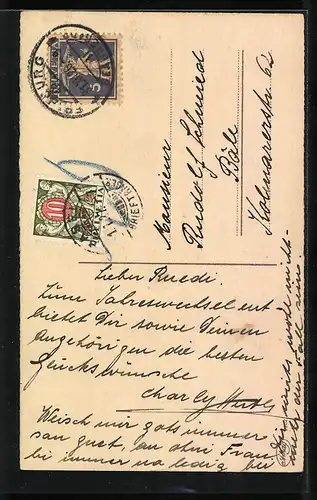 FRIBOURG
5
10
BRIEFTRÄGER
Monsieur
Rudolf Schmied
Bâle
Kolmarerstr. 62
Lieber Ruedi.
Zum Jahreswechsel ent
bietet Dir sowie Deinen
Angehörigen die besten
Glückswünsche
Charly
Weisch mir gots immer
sau guet, au ohni Frau
bi immer no ledig
wohl nicht
der Fall sein.